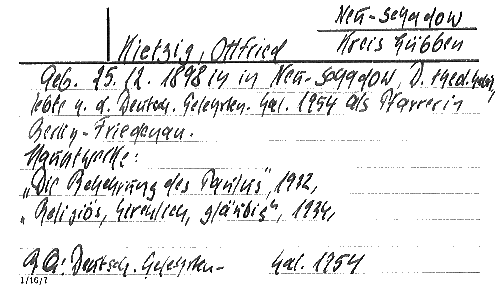 Neu-Schadow
Kreis Lübben
Kietzig, Ottfried
Geb. 25. 12. 1898 in Neu-Schadow, D. theol.
lebte n. d. Deutsch. Gelehrten. Kal. 1954 als Pfarrer in
Berlin-Friedenau.
Hauptwerke:
„Die Bekehrung des Paulus", 1932,
„Religiös, kirchlich, gläubig", 1934,
BQ: Deutsch. Gelehrten- Kal. 1954
1/10/7